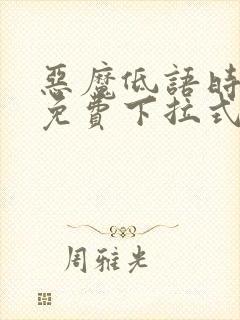 惡魔低語時
免費下拉式
周雅光